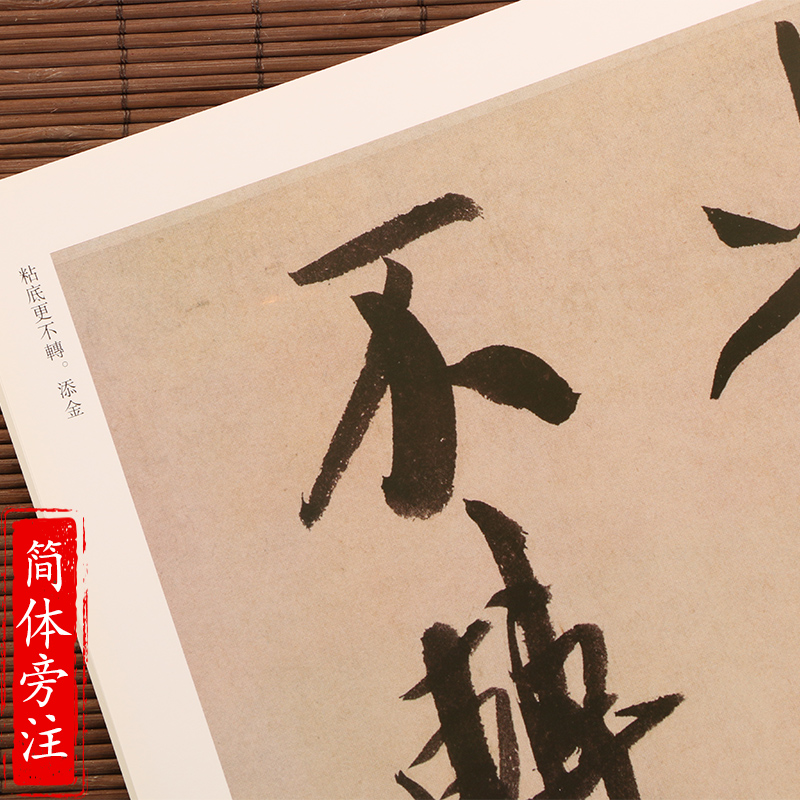 不轉
粘底更不轉。添金
简体旁注